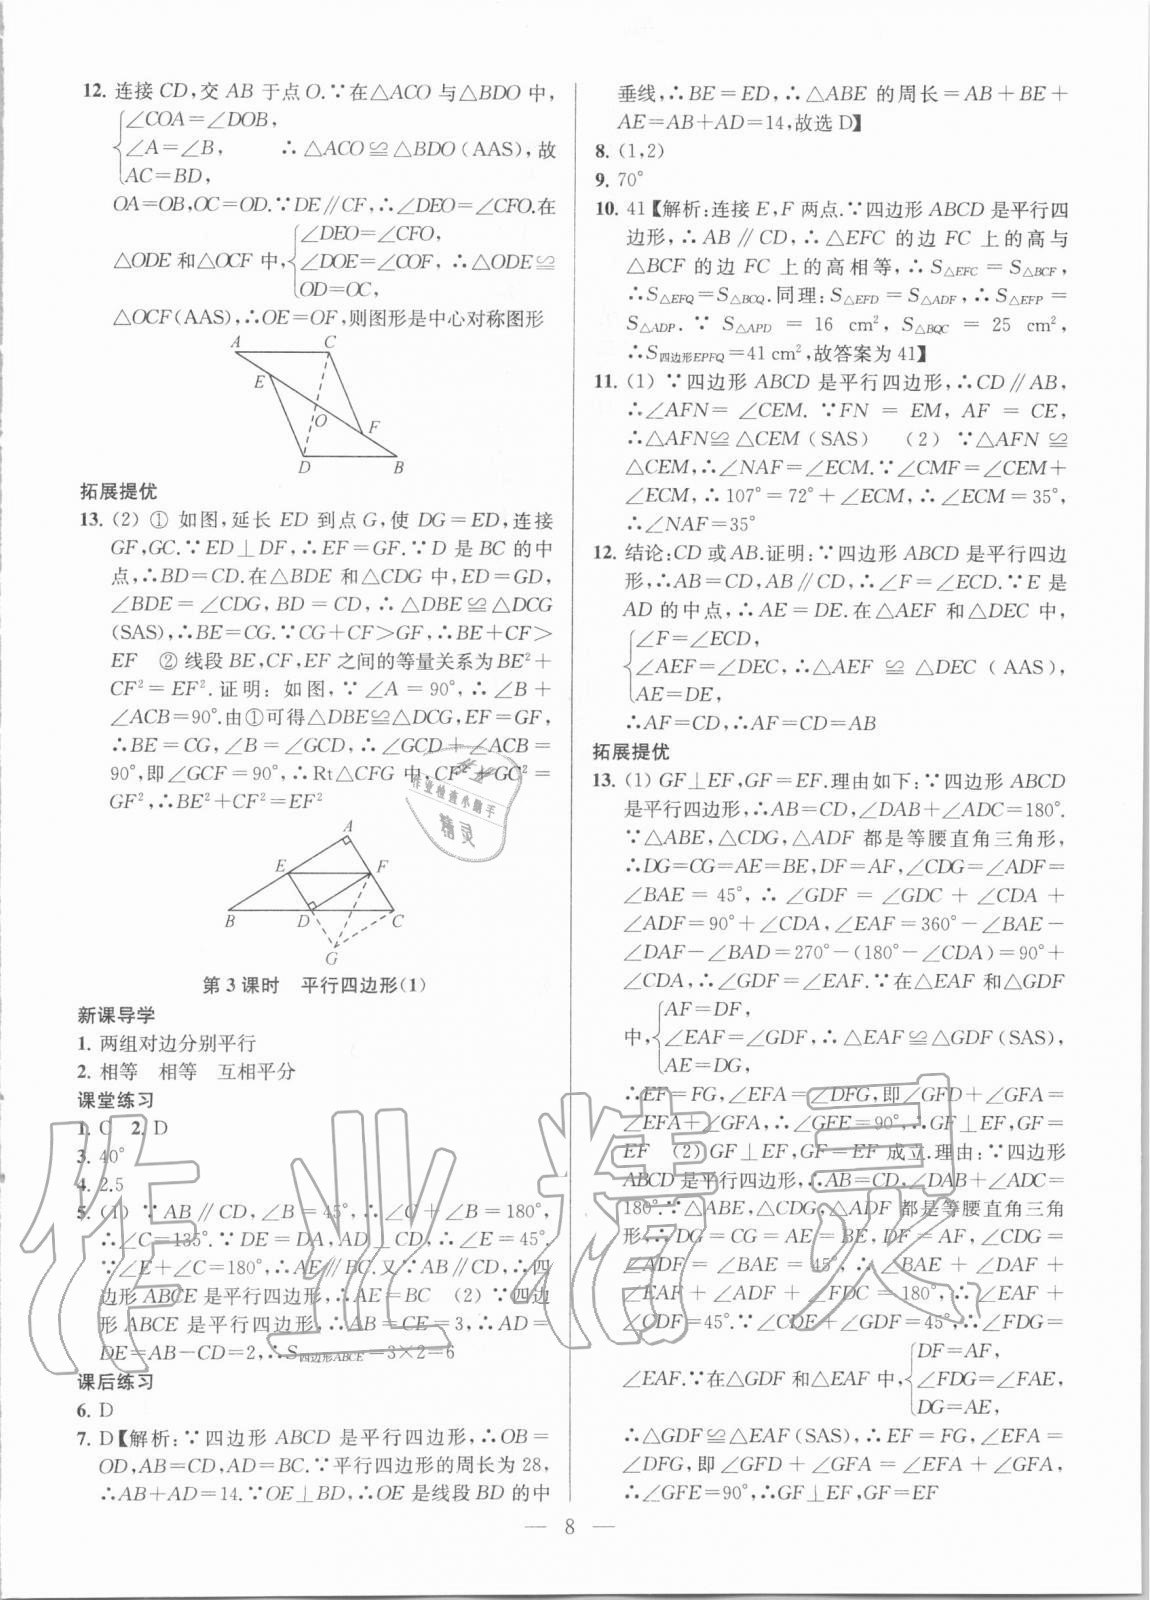 12. 连接CD,交AB于点O.∵在△ACO与△BDO中,
∠COA=∠DOB,
∠A=∠B,
AC=BD,
∴△ACO≌△BDO(AAS),故
OA=OB,OC=OD.∵DE∥CF,∴∠DEO=∠CFO.在
△ODE和△OCF中,
∠DEO=∠CFO,
∠DOE=∠COF,
OD=OC,
∴△ODE≌
△OCF(AAS),∴OE=OF,则图形是中心对称图形
A C
E
O
F
D B
拓展提优
13. (2) ① 如图,延长ED到点G,使DG=ED,连接
GF,GC.∵ED⊥DF,∴EF=GF.∵D是BC的中
点,∴BD=CD.在△BDE和△CDG中,ED=GD,
∠BDE=∠CDG,BD=CD,∴△DBE≌△DCG
(SAS),∴BE=CG.∵CG+CF>GF,∴BE+CF>
EF ② 线段BE,CF,EF之间的等量关系为BE²+
CF²=EF².证明:如图,∵∠A=90°,∴∠B+
∠ACB=90°.由①可得△DBE≌△DCG,EF=GF,
∴BE=CG,∠B=∠GCD,∴∠GCD+∠ACB=
90°,即∠GCF=90°,∴Rt△CFG中,CF²+GC²=
GF²,∴BE²+CF²=EF²
A
E F
B D C
G
第3课时 平行四边形(1)
新课导学
1. 两组对边分别平行
2. 相等 相等 互相平分
课堂练习
1. C 2. D
3. 40°
4. 2.5
5. (1) ∵AB∥CD,∠B=45°,∴∠C+∠B=180°,
∴∠C=135°.∵DE=DA,AD⊥CD,∴∠E=45°.
∵∠E+∠C=180°,∴AE∥BC.又∵AB∥CD,∴四
边形ABCE是平行四边形,∴AE=BC (2) ∵四边
形ABCE是平行四边形,∴AB=CE=3,∴AD=
DE=AB-CD=2,∴S四边形ABCE=3×2=6
课后练习
6. D
7. D【解析:∵四边形ABCD是平行四边形,∴OB=
OD,AB=CD,AD=BC.∵平行四边形的周长为28,
∴AB+AD=14.∵OE⊥BD,∴OE是线段BD的中
垂线,∴BE=ED,∴△ABE的周长=AB+BE+
AE=AB+AD=14,故选D】
8. (1,2)
9. 70°
10. 41【解析:连接E,F两点.∵四边形ABCD是平行四
边形,∴AB∥CD,∴△EFC的边FC上的高与
△BCF的边FC上的高相等,∴S△EFC=S△BCF,
∴S△EFQ=S△BCQ.同理:S△EFD=S△ADF,∴S△EFP=
S△ADP.∵S△APD=16 cm²,S△BQC=25 cm²,
∴S四边形EPFQ=41 cm²,故答案为41】
11. (1) ∵四边形ABCD是平行四边形,∴CD∥AB,
∴∠AFN=∠CEM.∵FN=EM,AF=CE,
∴△AFN≌△CEM(SAS) (2) ∵△AFN≌
△CEM,∴∠NAF=∠ECM.∵∠CMF=∠CEM+
∠ECM,∴107°=72°+∠ECM,∴∠ECM=35°,
∴∠NAF=35°
12. 结论:CD或AB.证明:∵四边形ABCD是平行四边
形,∴AB=CD,AB∥CD,∴∠F=∠ECD.∵E是
AD的中点,∴AE=DE.在△AEF和△DEC中,
∠F=∠ECD,
∠AEF=∠DEC,
AE=DE,
∴△AEF≌△DEC(AAS),
∴AF=CD,∴AF=CD=AB
拓展提优
13. (1) GF⊥EF,GF=EF.理由如下:∵四边形ABCD
是平行四边形,∴AB=CD,∠DAB+∠ADC=180°.
∵△ABE,△CDG,△ADF都是等腰直角三角形,
∴DG=CG=AE=BE,DF=AF,∠CDG=∠ADF=
∠BAE=45°,∴∠GDF=∠GDC+∠CDA+
∠ADF=90°+∠CDA,∠EAF=360°-∠BAE-
∠DAF-∠BAD=270°-(180°-∠CDA)=90°+
∠CDA,∴∠GDF=∠EAF.∵在△EAF和△GDF
中,
AF=DF,
∠EAF=∠GDF,
AE=DG,
∴△EAF≌△GDF(SAS),
∴EF=FG,∠EFA=∠DFG,即∠GFD+∠GFA=
∠EFA+∠GFA,∴∠GFE=90°,∴GF⊥EF,GF=
EF (2) GF⊥EF,GF=EF成立.理由:∵四边形
ABCD是平行四边形,∴AB=CD,∠DAB+∠ADC=
180°.∵△ABE,△CDG,△ADF都是等腰直角三角
形,∴DG=CG=AE=BE,DF=AF,∠CDG=
∠ADF=∠BAE=45°,∴∠BAE+∠DAF+
∠EAF+∠ADF+∠FDC=180°,∴∠EAF+
∠CDF=45°.∵∠CDF+∠GDF=45°,∴∠FDG=
∠EAF.∵在△GDF和△EAF中,
DF=AF,
∠FDG=∠FAE,
DG=AE,
∴△GDF≌△EAF(SAS),∴EF=FG,∠EFA=
∠DFG,即∠GFD+∠GFA=∠EFA+∠GFA,
∴∠GFE=90°,∴GF⊥EF,GF=EF
— 8 —
作业
作业检查小帮手
精灵
作业精灵